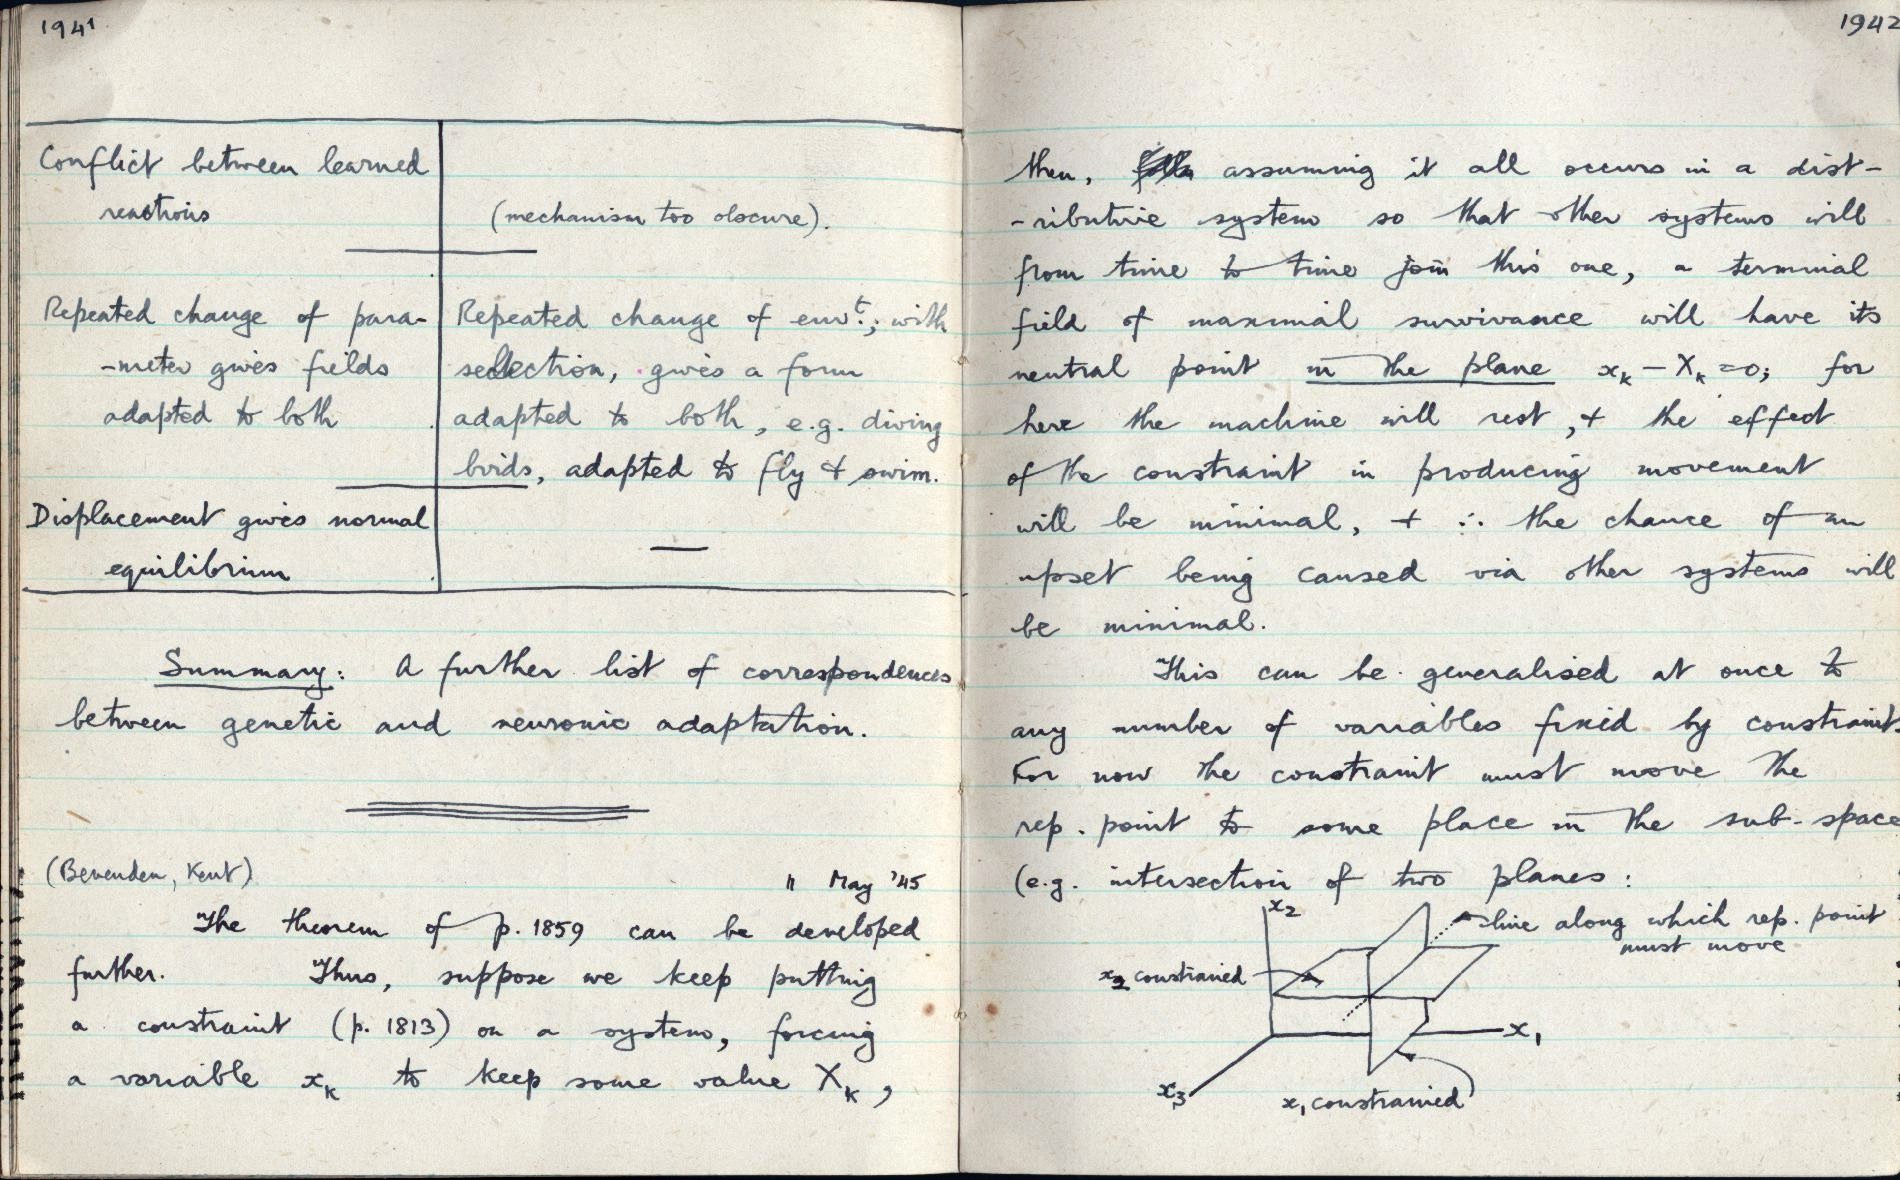 1941
Conflict between learned
reactions
(mechanism too obscure).
Repeated change of para-
-meter gives fields
adapted to both
Repeated change of envt.; with
selection, gives a form
adapted to both, e.g. diving
birds, adapted to fly & swim.
Displacement gives normal
equilibrium
—
Summary: A further list of correspondences
between genetic and neuronic adaptation.
(Bevenden, Kent)
11 May '45
The theorem of p. 1859 can be developed
further. Thus, suppose we keep putting
a constraint (p. 1813) on a system, forcing
a variable xk to keep some value Xk,
1942
then, assuming it all occurs in a dist-
-ributive system so that other systems will
from time to time join this one, a terminal
field of maximal survivance will have its
neutral point in the plane xk - Xk = 0; for
here the machine will rest, & the effect
of the constraint in producing movement
will be minimal, & ∴ the chance of an
upset being caused via other systems will
be minimal.
This can be generalised at once to
any number of variables fixed by constraint.
For now the constraint must move the
rep. point to some place in the sub-space
(e.g. intersection of two planes:
x2
line along which rep. point
must move
x2 constrained
x1
x3
x1 constrained